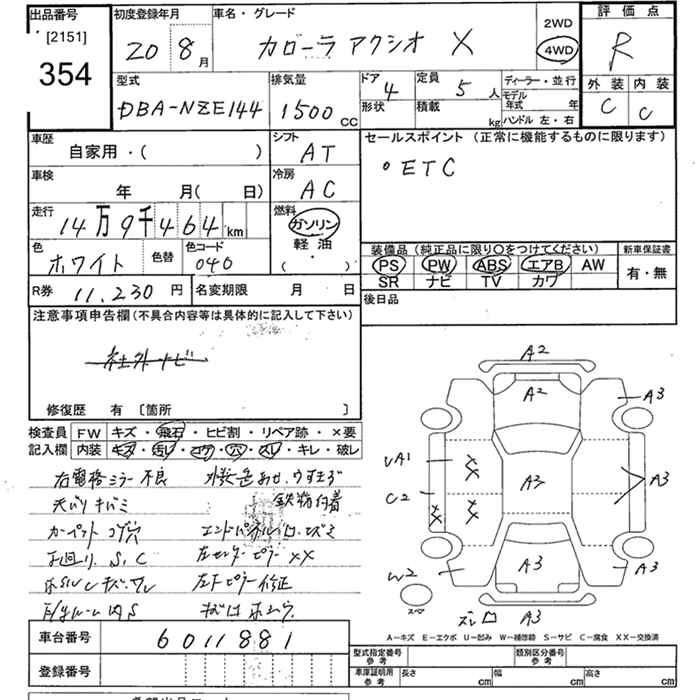 出品番号 初度登録年月 車名・グレード 評価点
[2151] 2WD
354 20 8月 カローラ アクシオ X 4WD R
型式 排気量 ドア 定員 ディーラー・並行 外装 内装
DBA-NZE144 1500cc 4 5人 モデル年式 年 C C
形状 積載 kg ハンドル 左・右
車歴 シフト セールスポイント (正常に機能するものに限ります)
自家用・( ) AT ・ETC
車検 冷房
年 月( 日) AC
走行 燃料
14万9千464km ガソリン
色 色替 色コード 軽油 装備品 (純正品に限り〇をつけてください) 新車保証書
ホワイト 040 ( ) PS PW ABS エアB AW 有・無
SR ナビ TV カワ
R券 11,230円 名変期限 月 日 後日品
注意事項申告欄 (不具合内容等は具体的に記入して下さい)
社外ナビ
修復歴 有 [箇所 ]
検査員 FW キズ・飛石・ヒビ割・リペア跡・×要
記入欄 内装 キズ・汚レ・コゲ・穴・スレ・キレ・破レ
右電格ミラー不良 外装色あせ、ウすキズ
天バリ キバミ 鉄粉付着
カーペット コゲ穴 エンドパネル
下廻り S、C 左センターピラー XX
修正
内 S
A2
A2
A3
UA1 A3 A3
C2
XX XX XX
A3 A3
W2
スペ ズレ A3
A-キズ E-エクボ U-凹み W-補修跡 S-サビ C-腐食 XX-交換済
車台番号 6011881
登録番号
型式指定番号 参考 類別区分番号 参考
車庫証明用 参考 長さ cm 幅 cm 高さ cm